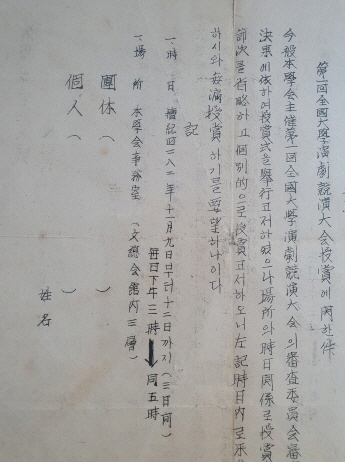 第一回全國大學演劇競演大会授賞에関한件
今般本學会主催第一回全國大學演劇競演大会의審査委員会審
決果에依하여授賞式을舉行코저하였으나場所와時日関係로授賞
節次를省略하고個別的으로授賞코저하오니左記時日内로来
하시와每滿授賞하기를要望하나이다
記
一、時日 檀紀四二八二年十一月九日부터十二日까지(三日間)
每日下午三時→同五時
一、場所 本學会事務室(文總会館内三層)
團体( )
個人( ) 姓名